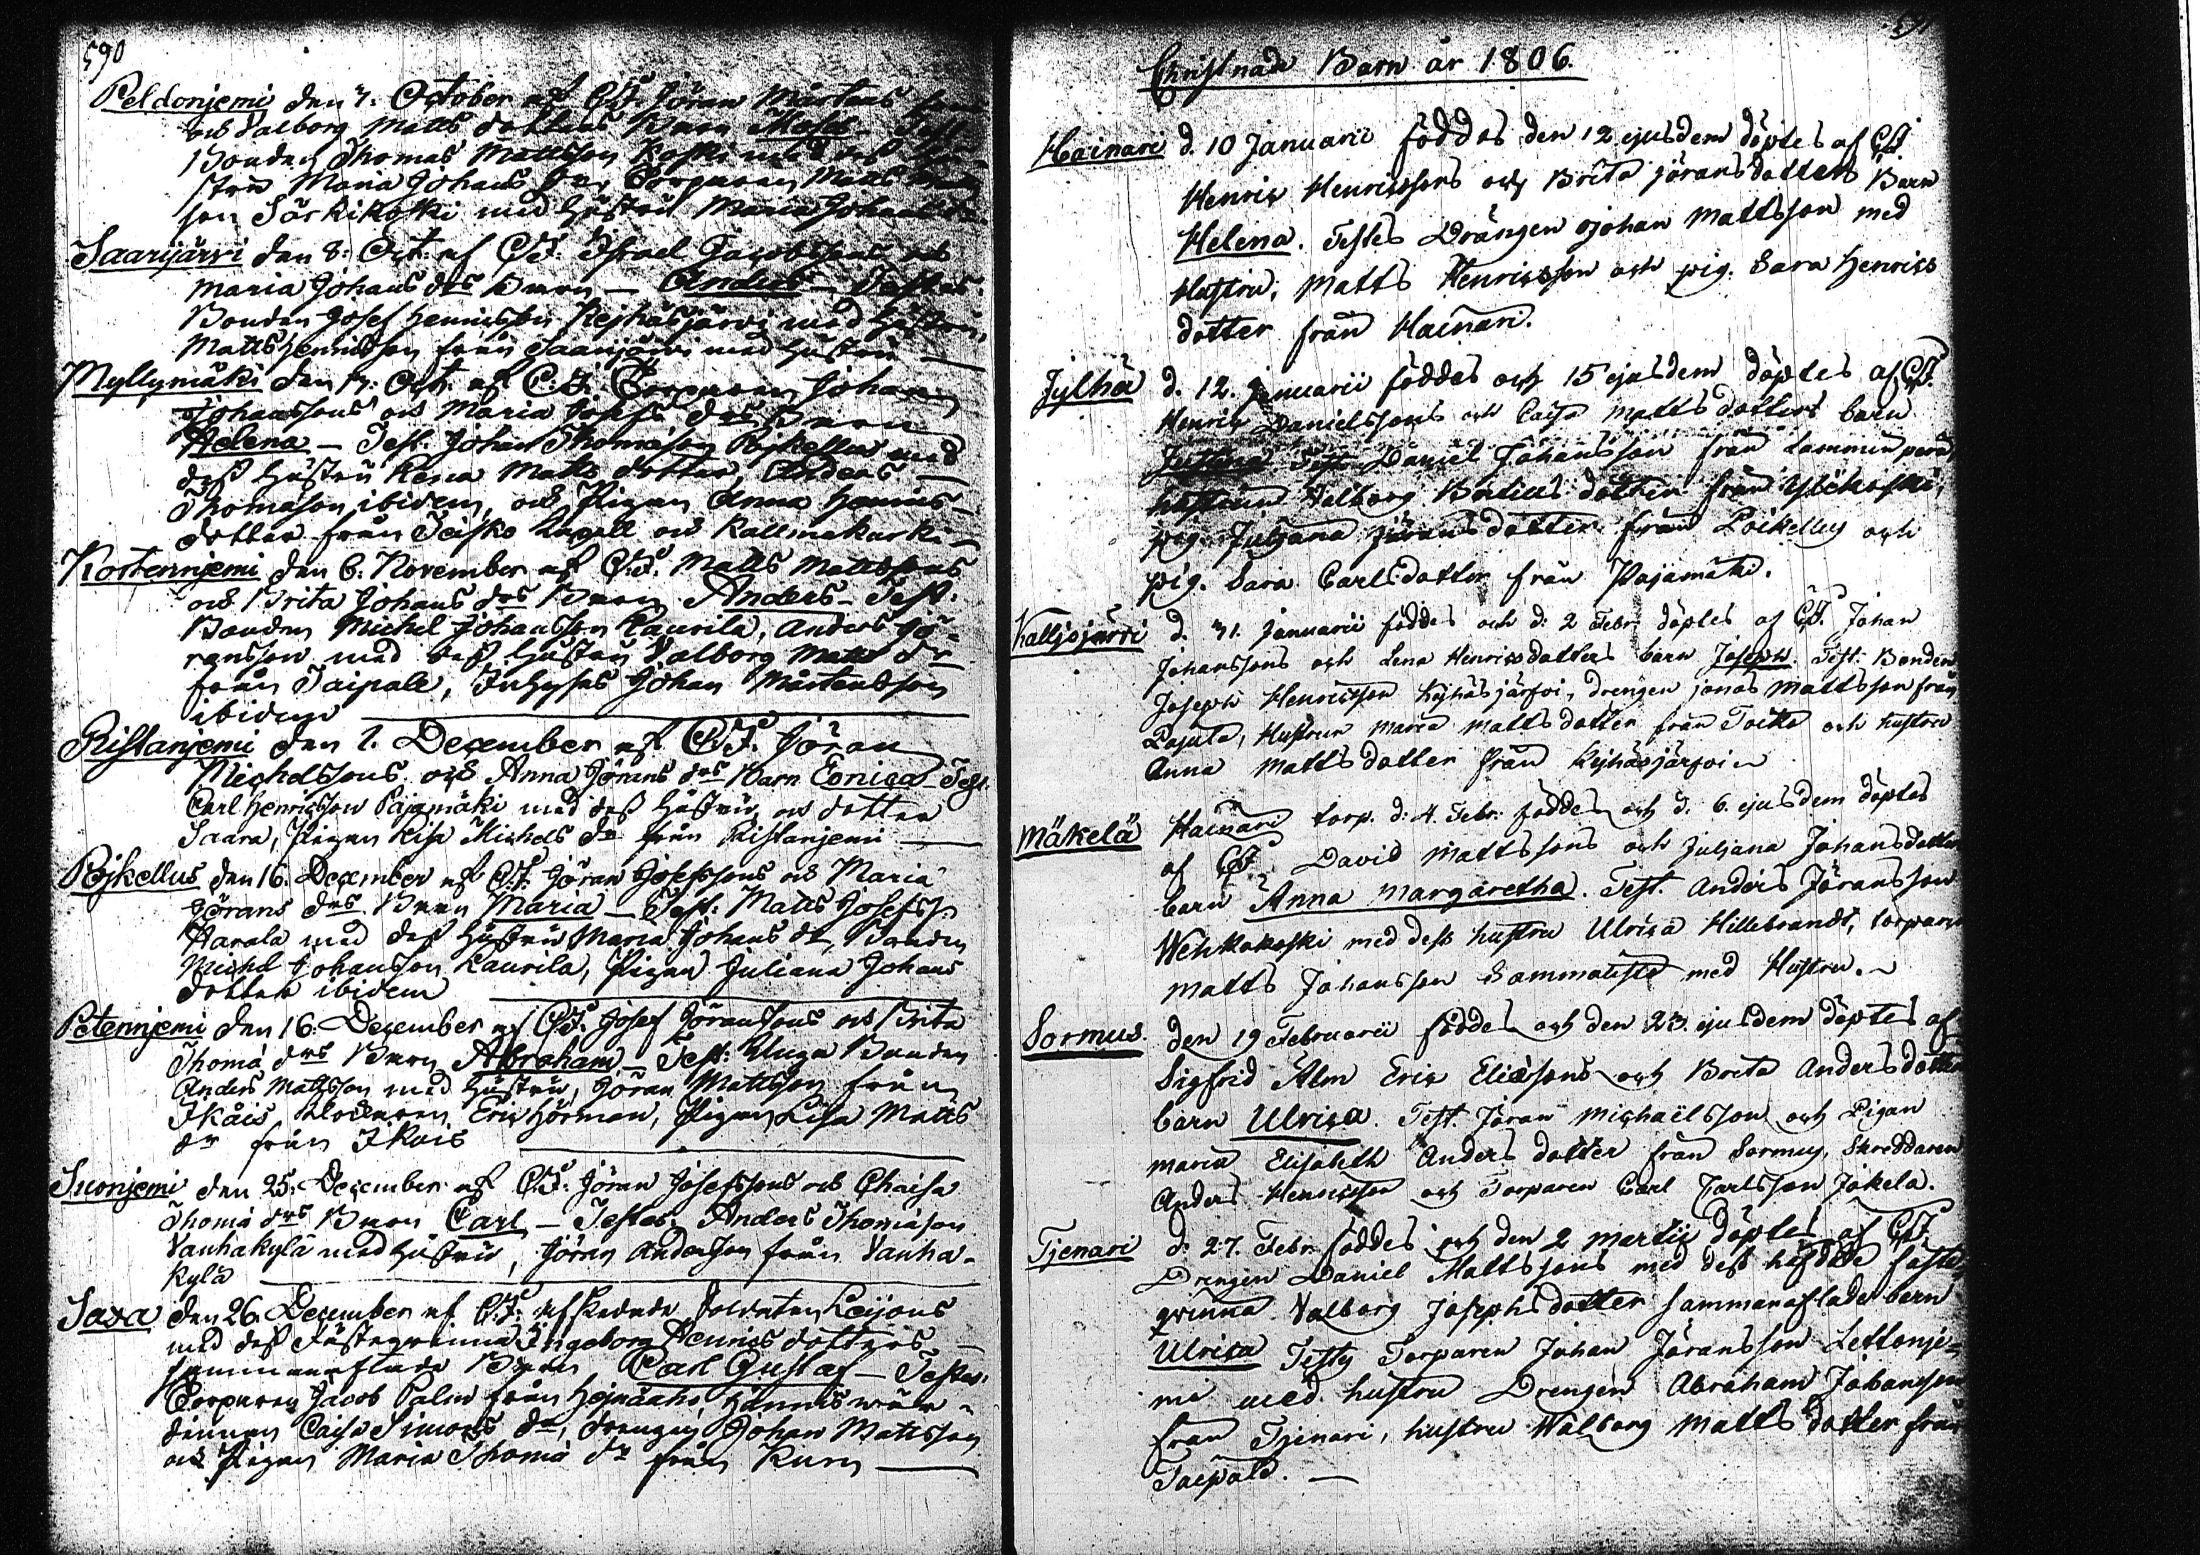 590
Peldonjemi den 7. October af C.F. Jöran Mårtens
och Valborg Matts dotters Barn Test.
Bonden Thomas Mattsson Koski med
stru Maria Johans Torparen Matts
son Särkikoski med Hustru Maria Johans
Saarijärvi den 8. Oct. af C.F. Israel Jacobssons och
Maria Johans drs Barn — Anders — Testes
Bonden Josef Henricsson Rejhäsjärvi med Hustru,
Matts Henricsson från Saarijärvi med Hustru —
Myllymäki den 17. Oct. af C.F. Torparen Johan
Johanssons och Maria Josefs drs Barn
Helena — Test. Johan Thomasson Pöjkellus med
dess Hustru Matts dotter, Anders
Thomason ibidem, och Pigan Anna Hanns-
dotter från Teisko Capell och
Kortenniemi den 6. November af C.F. Matts Mattssons
och Brita Johans drs Barn Anders — Test.
Bonden Michel Johansson Laurila, Anders Jö-
ransson med dess Hustru Valborg Matts dr
från Taipale, Inhyses Johan Mårtensson
ibidem
Ristanjemi den 1. December af C.F. Jöran
Michelssons och Anna Jörans drs Barn Test.
Carl Henricsson Pajamäki med dess Hustru och dotter
Saara, Pigan Lisa Michels dr från Ristanjemi —
Pöjkellus den 16. December af C.F. Jöran Josefssons och Maria
Jörans drs Barn Maria — Test: Matts Josefss.
Harala med dess Hustru Maria Johans dr, Bonden
Michel Johansson Laurila, Pigan Juliana Johans
dotter ibidem
Petennjemi den 16. December af C.F. Josef Jöranssons och Brita
Thomä drs Barn Abraham — Test: Unga Bonden
Anders Mattsson med Hustru, Jöran Mattsson från
Ikais, Eric Hörman, Pigan Lisa Matts
dr från Ikais
Suonjemi den 25. December af C.F. Jöran Josefssons och Chaisa
Thomä drs Barn Carl — Testes Anders Thomason
Vanhakylä med Hustru, Jöran Andersson från Vanha-
kylä
Saxa den 26. December af C.F. afskedade Soldaten Leijons
med dess Fästeqvinna Ingeborg Hennes dotters
sammanaflade Barn Carl Gustaf — Testes:
Torparen Jacob Palm från Hejnäaho
Caisa Simons dr, drengen Johan Mattsson
och Pigan Maria Thomä dr från Kuru —
591
Christnade Barn år 1806.
Hainari d. 10 Januarii föddes den 12 ejusdem döptes af C.F.
Henric Henricssons och Brita Jörans dotters Barn
Helena. Testes Drängen Johan Mattsson med
Hustru, Matts Henricsson och pig. Sara Henrics
dotter från Hainari.
Jylhä d. 12. Januarii föddes och 15 ejusdem döptes af C.F.
Henric Danielssons och Caisa Matts dotters barn
Juliana Test. Daniel Johansson från Lamminperä,
hustrun Valborg Bertils dotter från Ylickoski,
pig. Juljana Jörans dotter från Poikellus och
pig. Sara Carlsdotter från Pajamäki.
Kalljojärvi d. 31. Januarii föddes och d. 2 Febr. döptes af C.F. Johan
Johanssons och Lena Henricsdotters barn Joseph. Test. Bonden
Joseph Henricsson Rejhäsjärfvi, Drengen Jonas Mattsson från
Pajula, Hustrun Maria Mattsdotter från och hustru
Anna Mattsdotter från Rejhäsjärfvi
Mäkelä Hainari torp. d. 4. Febr. föddes och d. 6. ejusdem döptes
af C.F. David Mattssons och Juljana Johansdotters
barn Anna Margaretha. Test. Anders Jöransson
Wehkakoski med dess hustru Ulrica Hillebrandt, torparen
Matts Johansson Sammalisto med Hustru.
Sormus. den 19 Februarii föddes och den 23. ejusdem döptes af
Sigfrid Alm Eric Eliæsons och Brita Andersdotters
barn Ulrica. Test. Jöran Michaëlsson och Pigan
Maria Elisabeth Anders dotter från Sormus, Skreddaren
Anders Henricsson och Torparen Carl Carlsson Jokela.
Tjenari d. 27. Febr. föddes och den 2 Martii döptes af C.F.
Drengen Daniel Mattssons med dess häfdade fäste
qvinna Valborg Josephsdotter sammanaflade barn
Ulrica Testes Torparen Johan Jöransson Lettonje-
mi med hustru Drengen Abraham Johansson
från Tjenari, hustru Walborg Mattsdotter från
Taipale. —